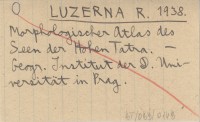 O LUZERNA R. 1938.
Morphologischer Atlas des
Seen der Hohen Tatra. —
Geogr. Institut der D. Uni-
versität in Prag.